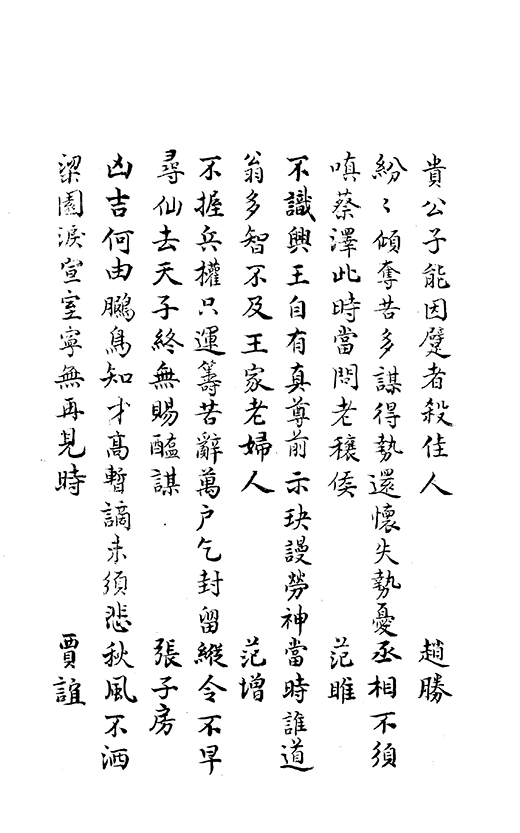 貴公子能因躄者殺佳人　趙勝
紛〻傾奪苦多謀得勢還懷失勢憂丞相不須
嗔蔡澤此時當問老穰侯　范雎
不識興王自有真尊前示玦謾勞神當時誰道
翁多智不及王家老婦人　范增
不握兵權只運籌苦辭萬户乞封留縱令不早
尋仙去天子終無賜醢謀　張子房
凶吉何由鵩鳥知才高暫謫未須悲秋風不洒
梁園淚宣室寧無再見時　賈誼